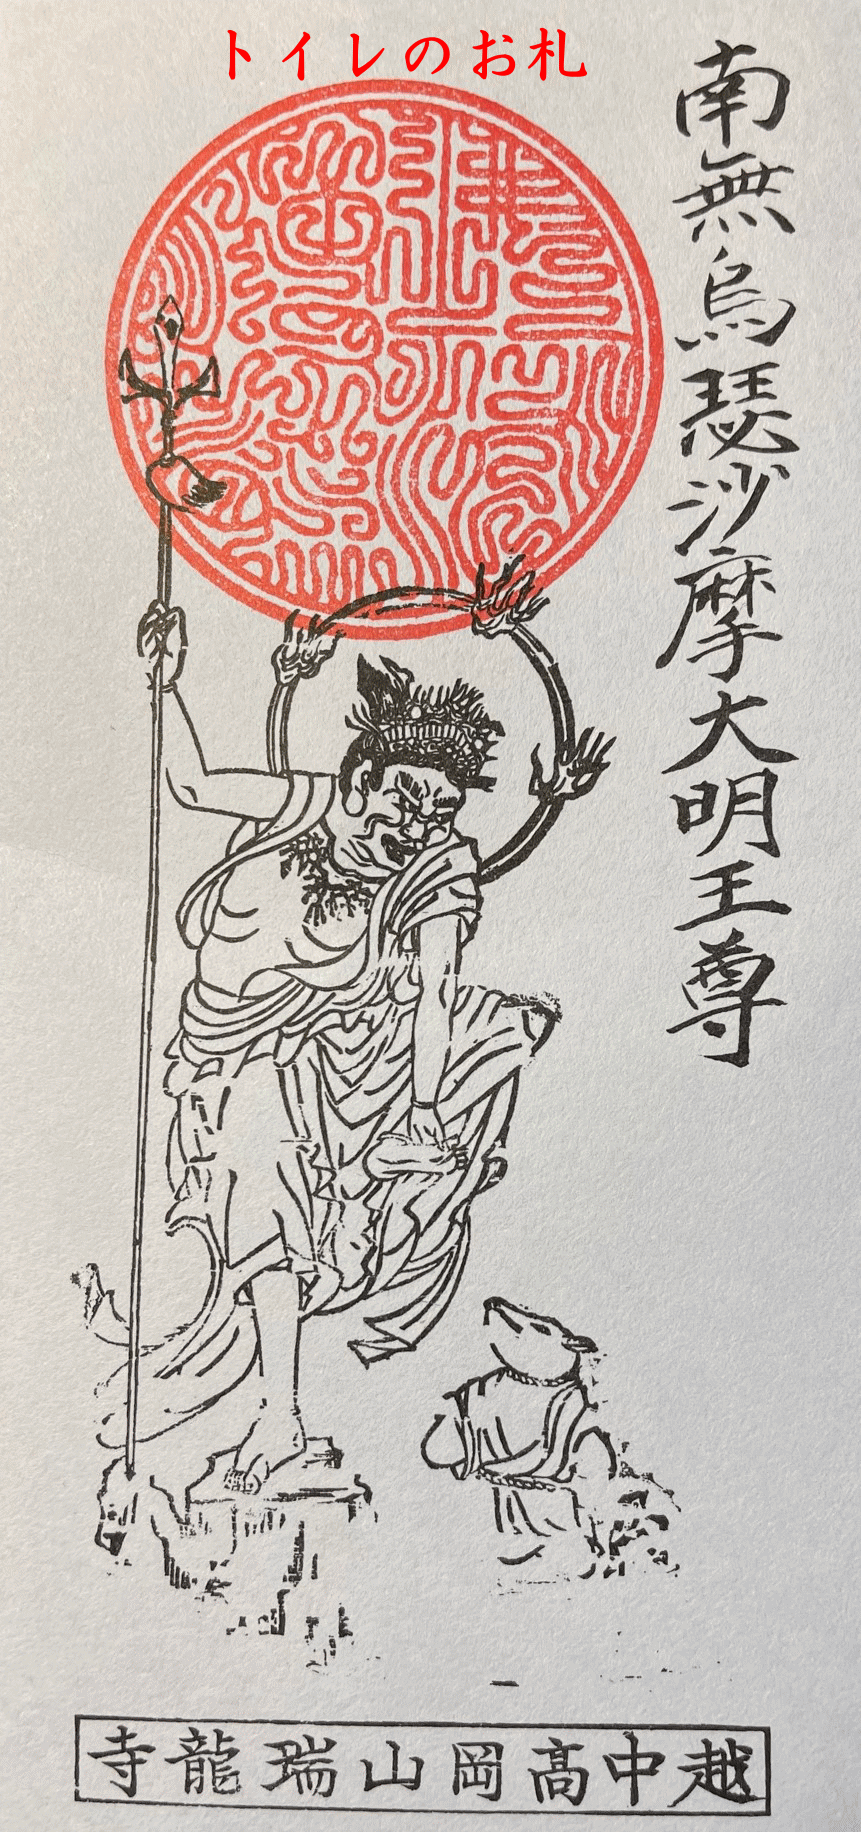 トイレのお札
南無烏瑟沙摩大明王尊
越中高岡山瑞龍寺